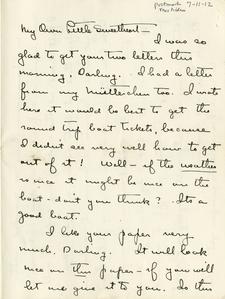 postmark 7-11-12
My Own Little Sweetheart—
I was so
glad to get your two letters this
morning, Darling. I had a letter
from my Mütterchen too. I wrote
her it would be best to get the
round trip boat tickets, because
I didn't see very well how to get
out of it! Well—if the weather
is nice it might be nice on the
boat—don't you think? It's a
good boat.
I like your paper very
much, Darling. It will look
nice on this paper—if you will
let me give it to you. Do this